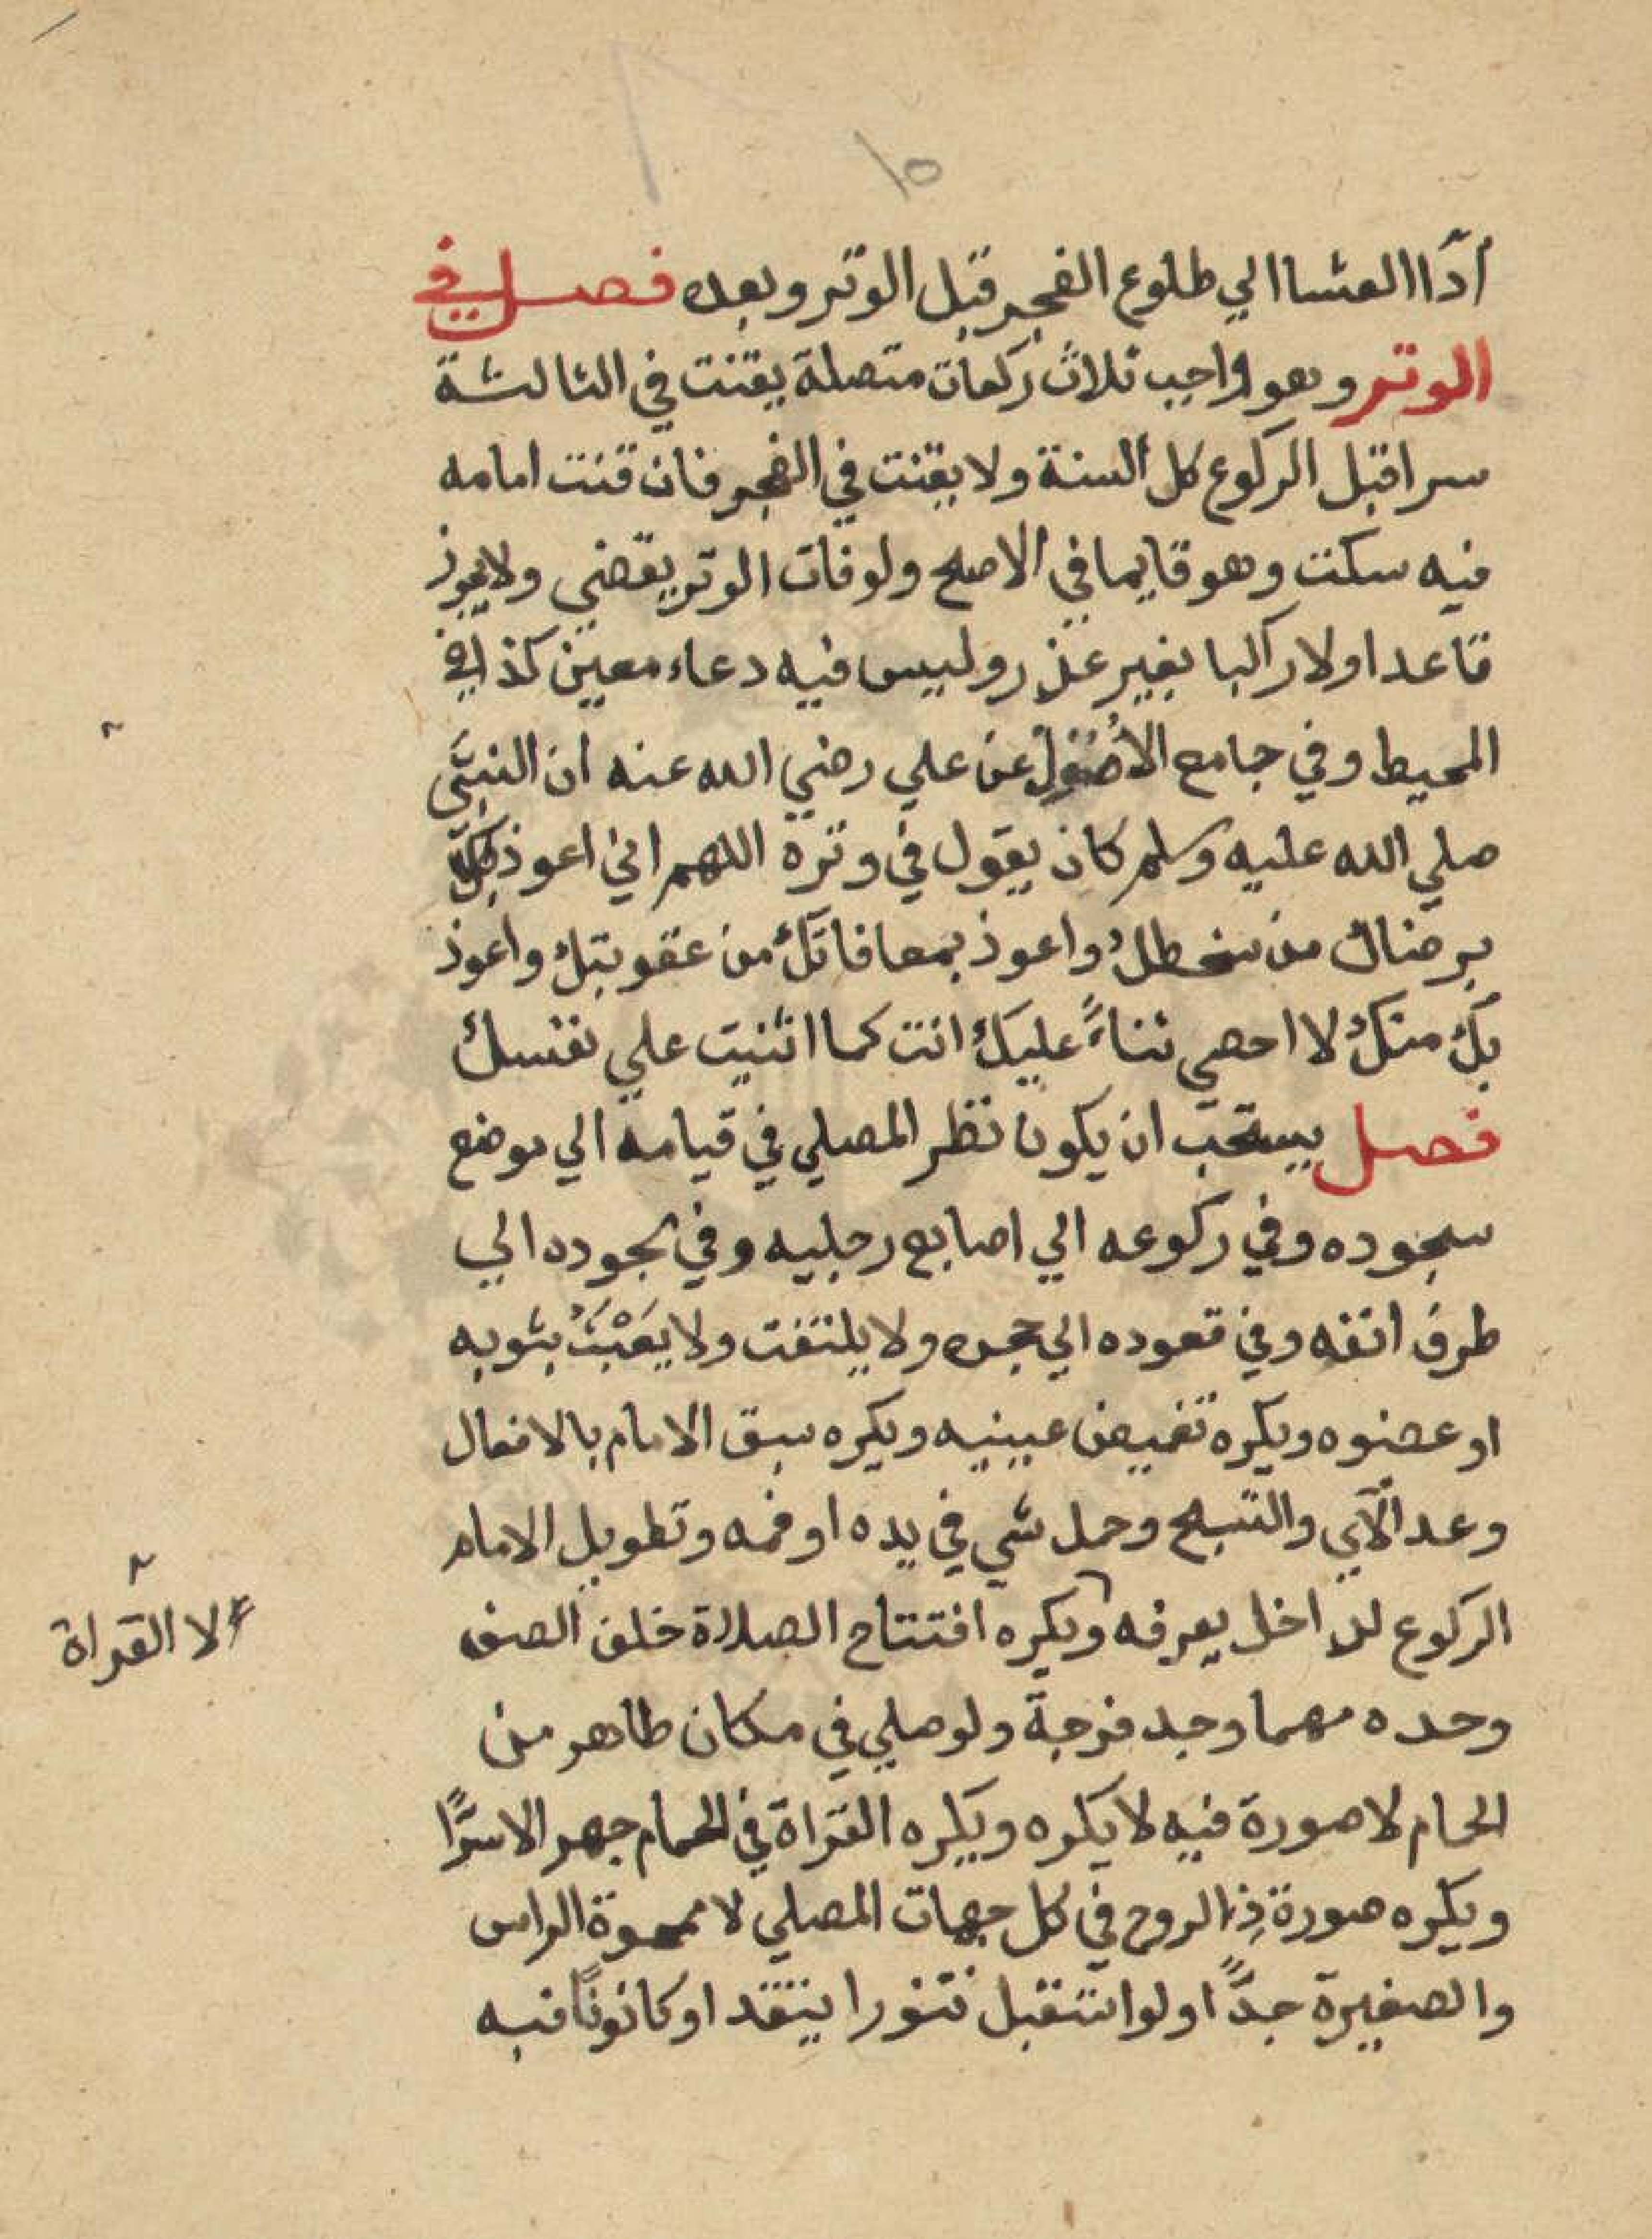 ١٥
أدّاا العشا الي طلوع الفجر قبل الوتر وبعده فصل في
الوتر وهو واجب ثلاث ركعات متصلة يقنت في الثالثة
سرا قبل الركوع كل السنة ولا يقنت في الفجر فان قنت امامه
فيه سكت وهو قايما في الاصح ولو فات الوتر يقضي ولا يجوز
قاعدا ولا راكبا بغير عذر وليس فيه دعاء معين كذا في
المحيط وفي جامع الأصُول عن علي رضي الله عنه ان النبيّ
صلي الله عليه وسلم كان يقول في وتره اللهم اني اعوذ
برضاك من سخطك واعوذ بمعافاتك من عقوبتك واعوذ
بك منك لا احصي ثناءً عليك انت كما اثنيت علي نفسك
فصل يستحب ان يكون نظر المصلي في قيامه الي موضع
سجوده وفي ركوعه الي اصابع رجليه وفي سجوده الي
طرف انفه وفي قعوده الي حجره ولا يلتفت ولا يَعْبَثُ بثوبه
او عضوه ويكره تغميض عينيه ويكره سبق الامام بالافعال
وعد الآي والتسبيح وحمل شي في يده او فمه وتطويل الامام
الركوع لداخل يعرفه ويكره افتتاح الصلاة خلف الصف
لا القراة
وحده مهما وجد فرجة ولو صلي في مكان طاهر من
الحمام لا صورة فيه لا يكره ويكره القراة في الحمام جهرا لا سرًّا
ويكره صورة ذا الروح في كل جهات المصلي لا ممحوة الراس
والصغيرة جدًّا ولو استقبل تنورا يتقد او كانونًا فيه